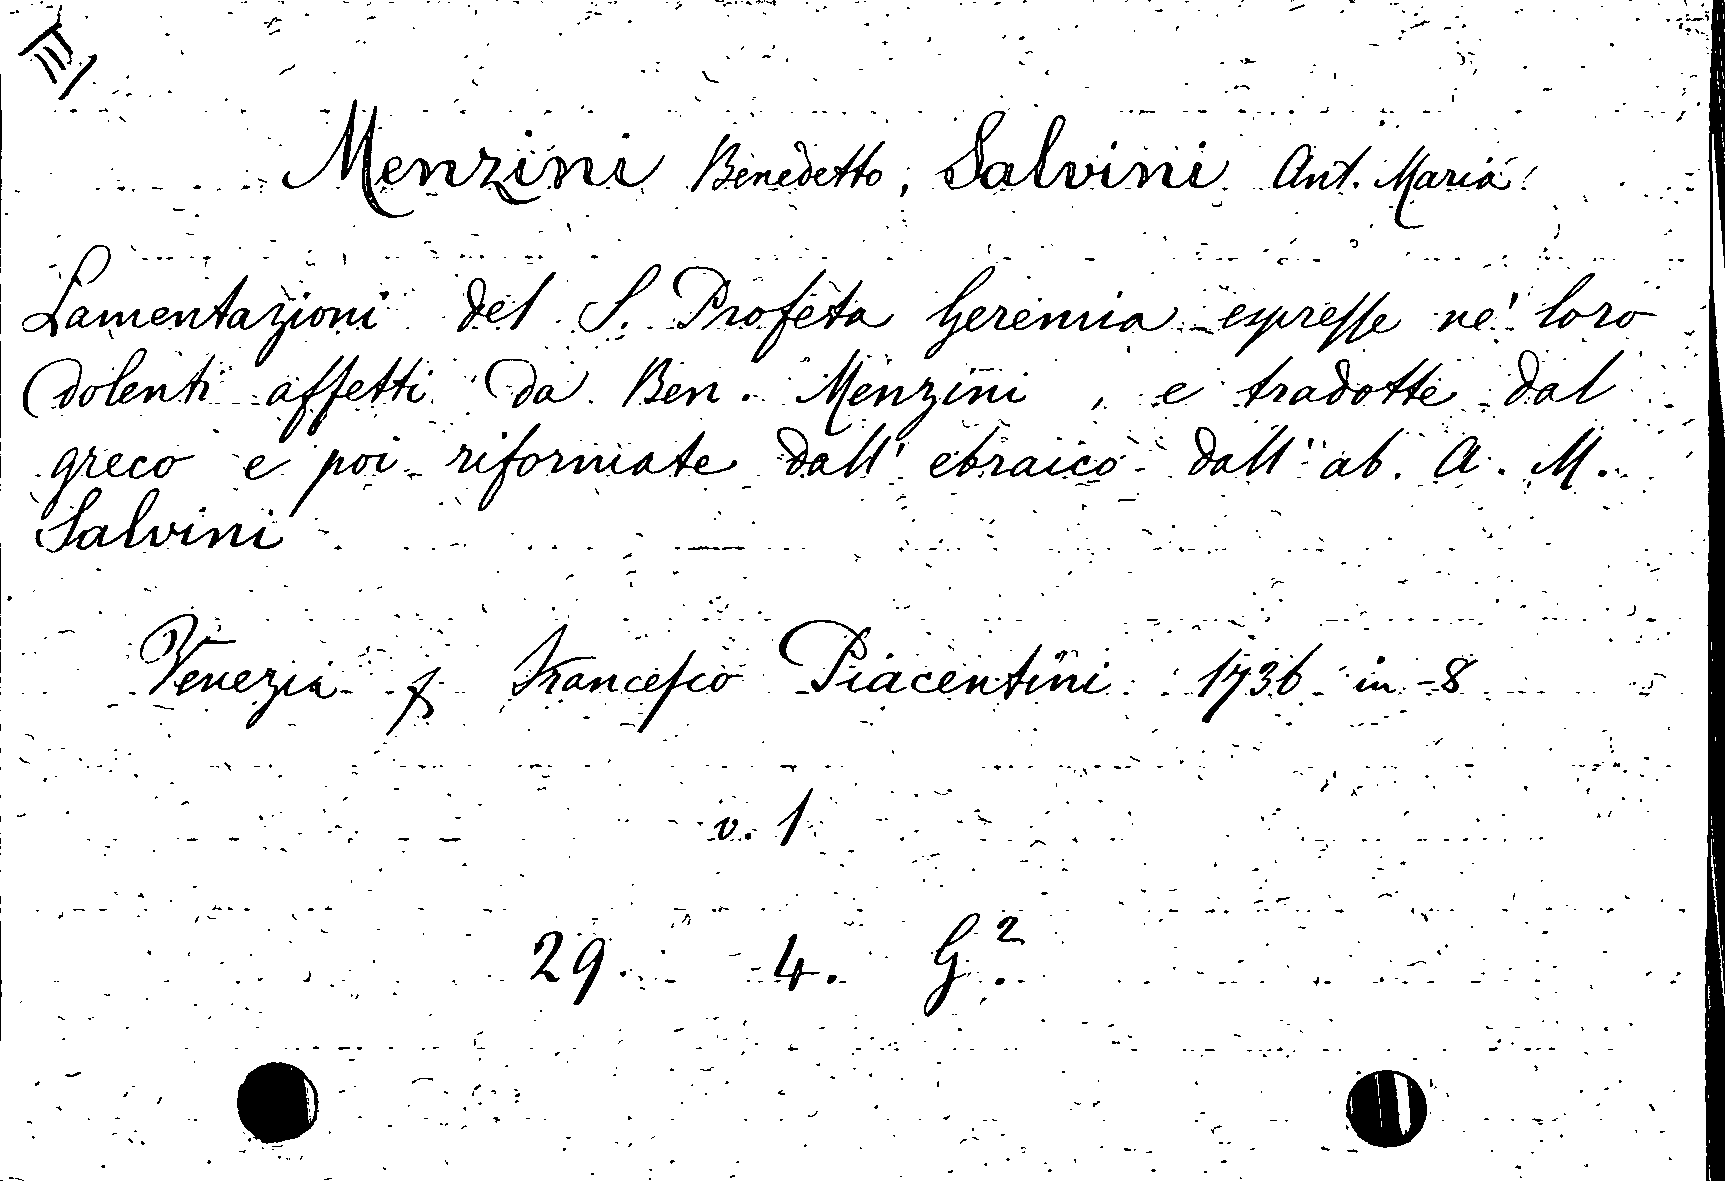 III
Menzini Benedetto, Salvini Ant. Maria
Lamentazioni del S. Profeta Geremia espresse ne' loro
dolenti affetti da Ben. Menzini, e tradotte dal
greco e poi riformate dall' ebraico dall' ab. A. M.
Salvini
Venezia f Francesco Piacentini 1736 in-8
v. 1
29. 4. G².